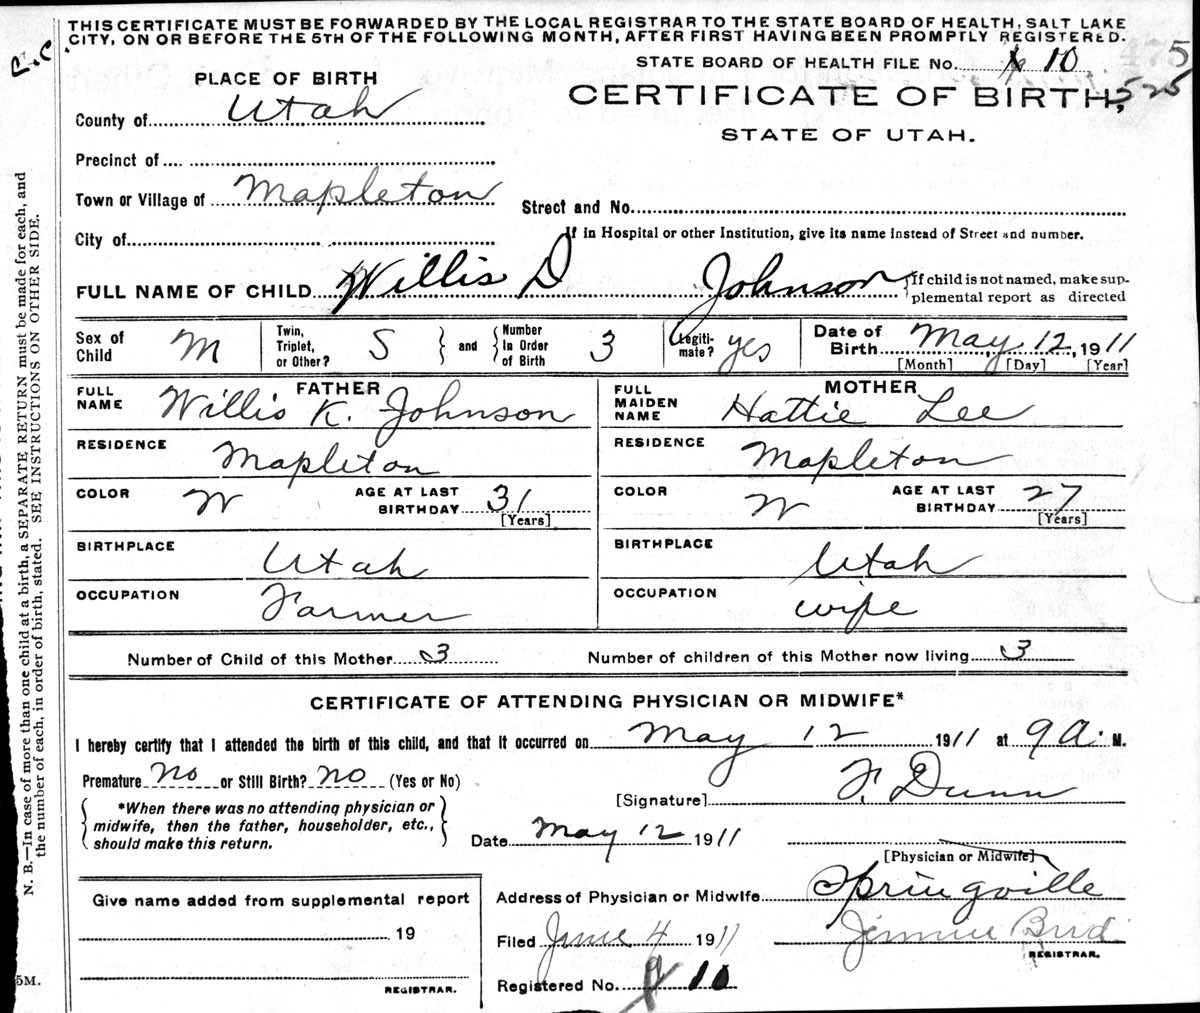 THIS CERTIFICATE MUST BE FORWARDED BY THE LOCAL REGISTRAR TO THE STATE BOARD OF HEALTH, SALT LAKE
CITY, ON OR BEFORE THE 5TH OF THE FOLLOWING MONTH, AFTER FIRST HAVING BEEN PROMPTLY REGISTERED.
STATE BOARD OF HEALTH FILE No. 10
475
525
PLACE OF BIRTH
CERTIFICATE OF BIRTH
STATE OF UTAH.
County of Utah
Precinct of
Town or Village of Mapleton
Street and No.
City of
If in Hospital or other Institution, give its name instead of Street and number.
FULL NAME OF CHILD Willis D Johnson
If child is not named, make sup-
plemental report as directed
Sex of Child M
Twin, Triplet, or Other? S
and
Number In Order of Birth 3
Legiti-mate? yes
Date of Birth May 12, 1911
[Month] [Day] [Year]
FATHER
FULL NAME Willis K. Johnson
RESIDENCE
Mapleton
COLOR W AGE AT LAST BIRTHDAY 31
[Years]
BIRTHPLACE
Utah
OCCUPATION
Farmer
MOTHER
FULL MAIDEN NAME Hattie Lee
RESIDENCE
Mapleton
COLOR W AGE AT LAST BIRTHDAY 27
[Years]
BIRTHPLACE
Utah
OCCUPATION
wife
Number of Child of this Mother 3
Number of children of this Mother now living 3
CERTIFICATE OF ATTENDING PHYSICIAN OR MIDWIFE*
I hereby certify that I attended the birth of this child, and that it occurred on May 12 1911 at 9 A. M.
Premature no or Still Birth? no (Yes or No)
[Signature] F. Dunn
*When there was no attending physician or
midwife, then the father, householder, etc.,
should make this return.
Date May 12 1911
[Physician or Midwife]
Address of Physician or Midwife Springville
Give name added from supplemental report
19
REGISTRAR.
Filed June 4 1911
REGISTRAR.
Registered No. 10
N. B.—In case of more than one child at a birth, a SEPARATE RETURN must be made for each, and
the number of each, in order of birth, stated. SEE INSTRUCTIONS ON OTHER SIDE.
5M.